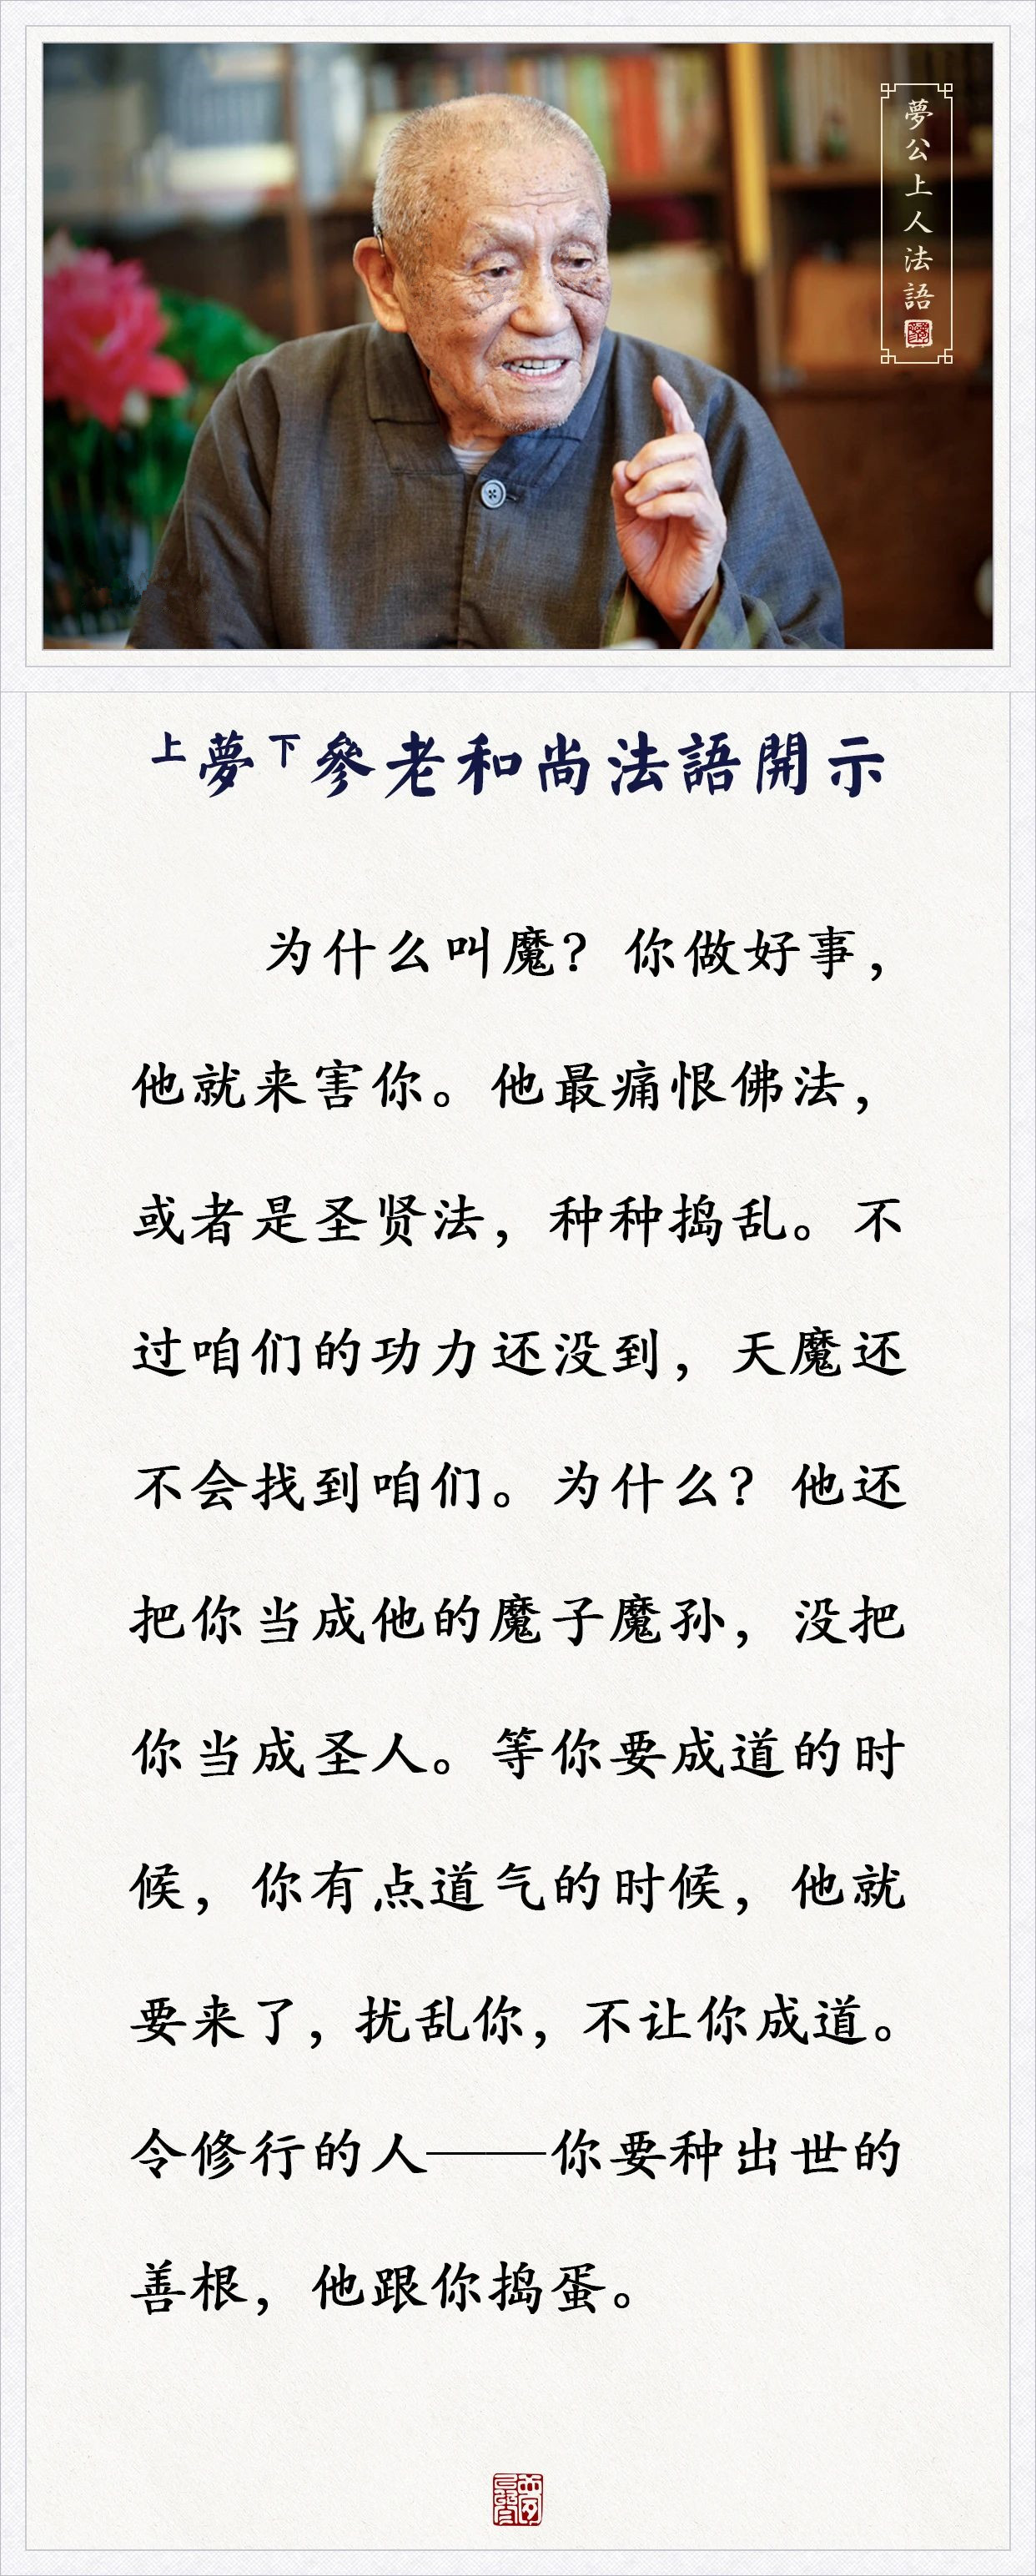 夢公上人法語
上夢下參老和尚法語開示
为什么叫魔？你做好事，
他就来害你。他最痛恨佛法，
或者是圣贤法，种种捣乱。不
过咱们的功力还没到，天魔还
不会找到咱们。为什么？他还
把你当成他的魔子魔孙，没把
你当成圣人。等你要成道的时
候，你有点道气的时候，他就
要来了，扰乱你，不让你成道。
令修行的人——你要种出世的
善根，他跟你捣蛋。